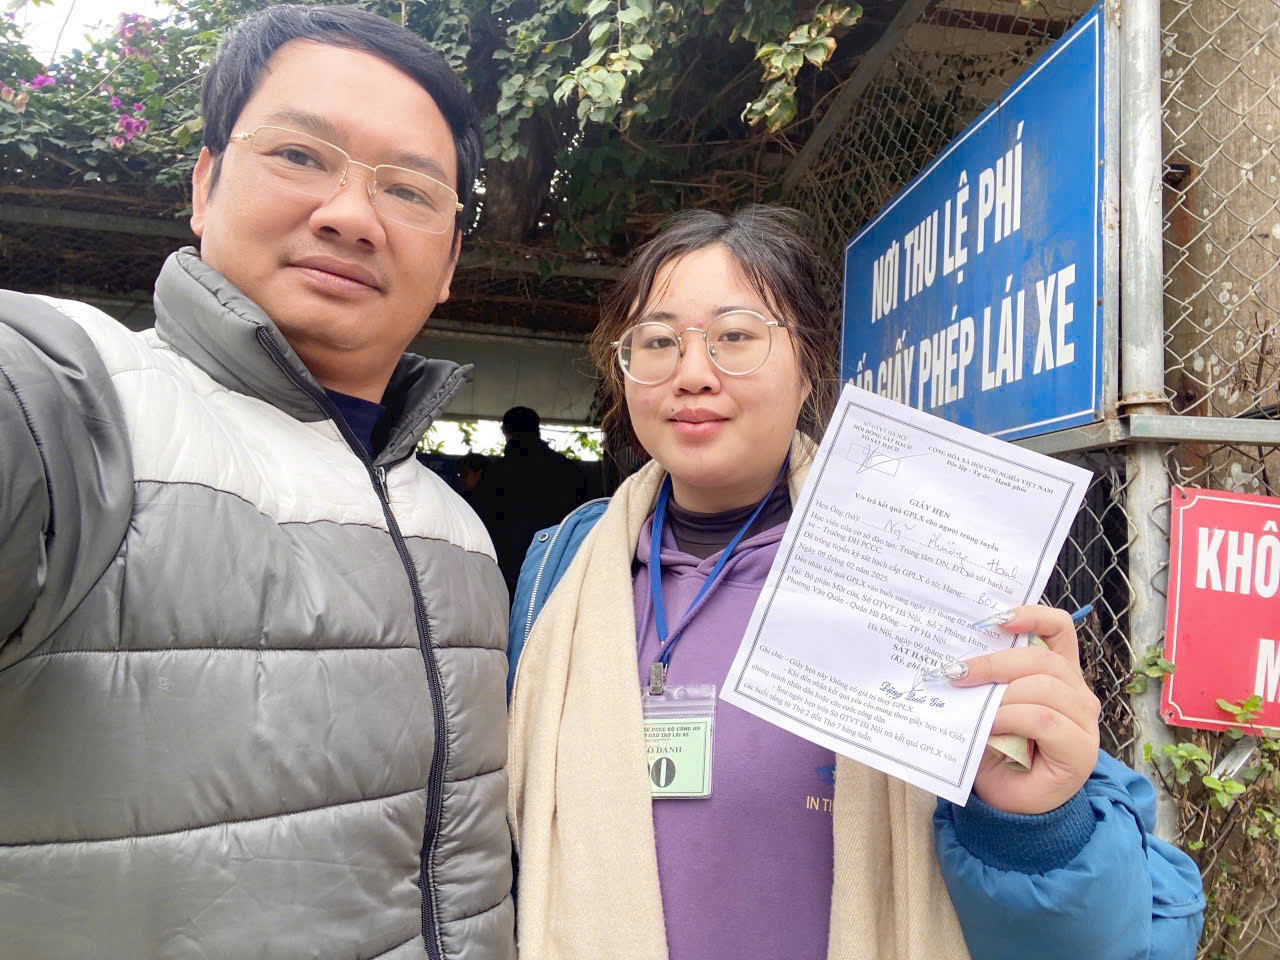 NƠI THU LỆ PHÍ
CẤP GIẤY PHÉP LÁI XE
KHÔ
M
SỞ GTVT HÀ NỘI
HỘI ĐỒNG SÁT HẠCH
TỔ SÁT HẠCH
CỘNG HÒA XÃ HỘI CHỦ NGHĨA VIỆT NAM
Độc lập - Tự do - Hạnh phúc
GIẤY HẸN
V/v trả kết quả GPLX cho người trúng tuyển
Hẹn Ông (bà):
Học viên của cơ sở đào tạo: Trung tâm DN, ĐT và sát hạch lái
xe – Trường ĐH PCCC
Đã trúng tuyển kỳ sát hạch cấp GPLX ô tô; Hạng:
Ngày 09 tháng 02 năm 2025
Đến nhận kết quả GPLX vào buổi sáng ngày 17 tháng 02 năm 2025
Tại: Bộ phận Một cửa, Sở GTVT Hà Nội, Số 2 Phùng Hưng
Phường Văn Quán - Quận Hà Đông – TP Hà Nội
Hà Nội, ngày 09 tháng 02
SÁT HẠCH V
(Ký, ghi
Đặng Quốc Gia
Ghi chú: - Giấy hẹn này không có giá trị thay GPLX.
- Khi đến nhận kết quả yêu cầu mang theo giấy hẹn và Giấy
chứng minh nhân dân hoặc căn cước công dân
- Sau ngày hẹn trên Sở GTVT Hà Nội trả kết quả GPLX vào
các buổi sáng từ Thứ 2 đến Thứ 7 hàng tuần.
NG PCCC BỘ CÔNG AN
ĐÀO TẠO LÁI XE
DANH
0
IN TH